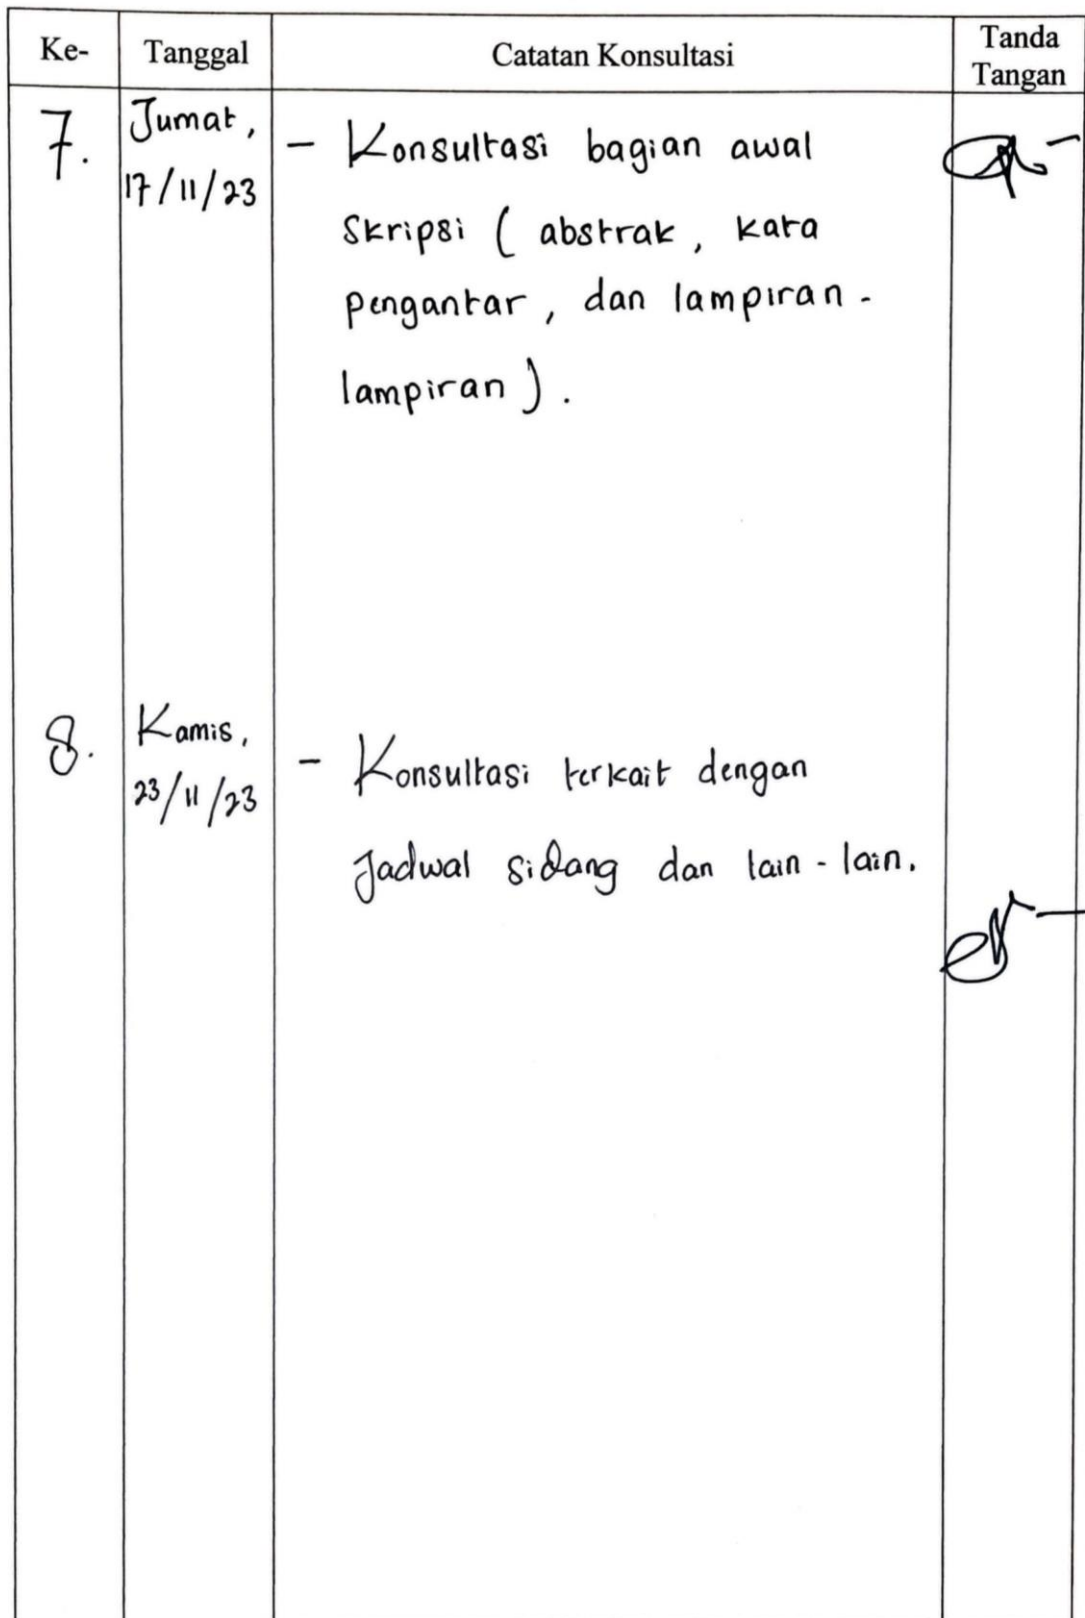 Ke- Tanggal Catatan Konsultasi Tanda Tangan
7. Jumat,
17/11/23
- Konsultasi bagian awal
Skripsi ( abstrak, kata
pengantar, dan lampiran -
lampiran ).
8. Kamis,
23/11/23
- Konsultasi terkait dengan
Jadwal sidang dan lain - lain.